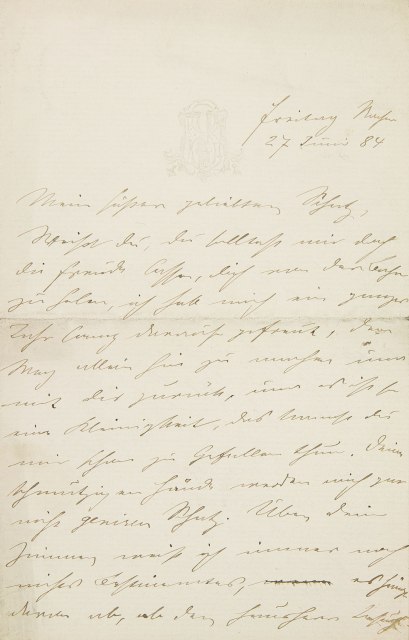 Freitag
27 Juni 84
Mein süßer geliebter Schatz,
Weißt du, du solltest mir doch
die Freude lassen, dich von der Bahn
zu holen, ich hab mich ein ganzes
Jahr lang darauf gefreut, den
Weg allein hin zu machen und
mit dir zurück, und es ist so
eine Kleinigkeit, das kannst du
mir schon zu Gefallen thun. Deine
schmutzigen Hände werden mich gar
nicht genieren Schatz. Über dein
Zimmer weiß ich immer noch
nichts Bestimmtes, es hängt
davon ab, ob der Hausherr